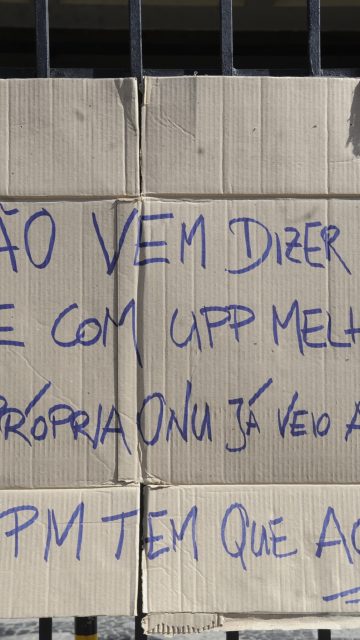 ÃO VEM DIZER
E COM UPP MELH
PRÓPRIA ONU JÁ VEIO A
PM TEM QUE AC